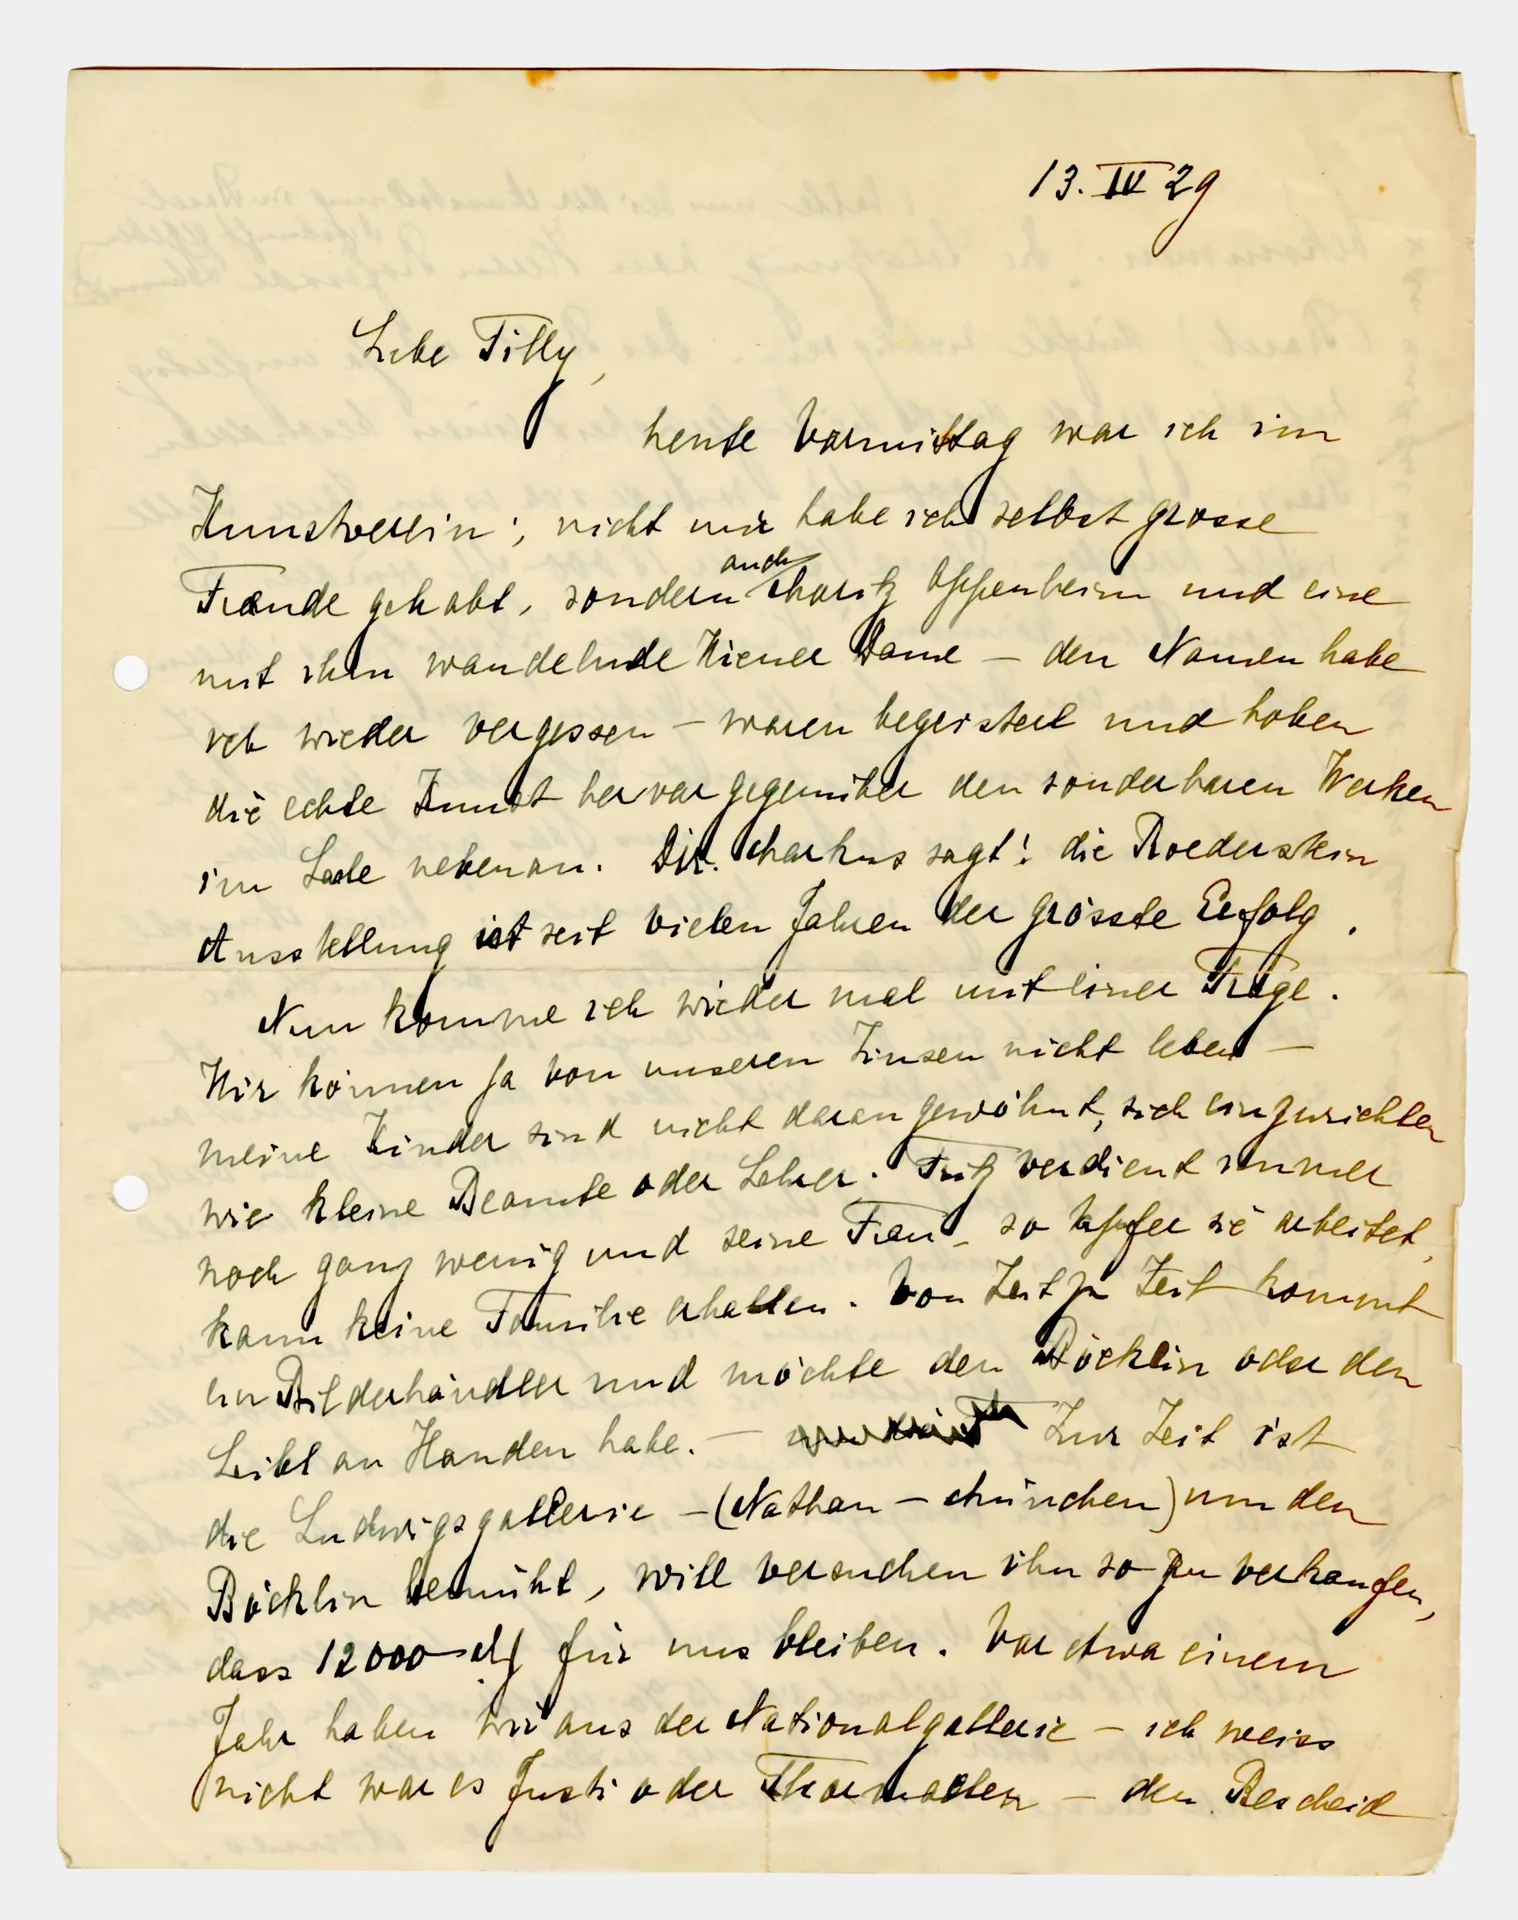 13. IV 29
Liebe Tilly,
heute Vormittag war ich im
Kunstverein; nicht nur habe ich selbst grosse
Freude gehabt, sondern auch Moritz Oppenheim und eine
mit ihm wandelnde Wiener Dame – den Namen habe
ich wieder vergessen – waren begeistert und hoben
die echte Kunst hervor gegenüber den sonderbaren Werken
im Saale nebenan. Dir. Markus sagt: die Roederstein
Ausstellung ist seit vielen Jahren der grösste Erfolg.
Nun komme ich wieder mal mit einer Frage.
Wir können ja von unseren Zinsen nicht leben –
meine Kinder sind nicht daran gewöhnt, sich einzurichten
wie kleine Beamte oder Lehrer. Fritz verdient immer
noch ganz wenig und seine Frau – so tapfer sie arbeitet,
kann keine Familie erhalten. Von Zeit zu Zeit kommt
ein Bilderhändler und möchte den Böcklin oder den
Leibl an Handen habe. – Zur Zeit ist
die Ludwigsgallerie – (Nathan – München) um den
Böcklin bemüht, will versuchen ihn so zu verkaufen,
dass 12000 M für uns bleiben. Vor etwa einem
Jahr haben wir aus der Nationalgallerie – ich weiss
nicht war es Justi oder – den Bescheid